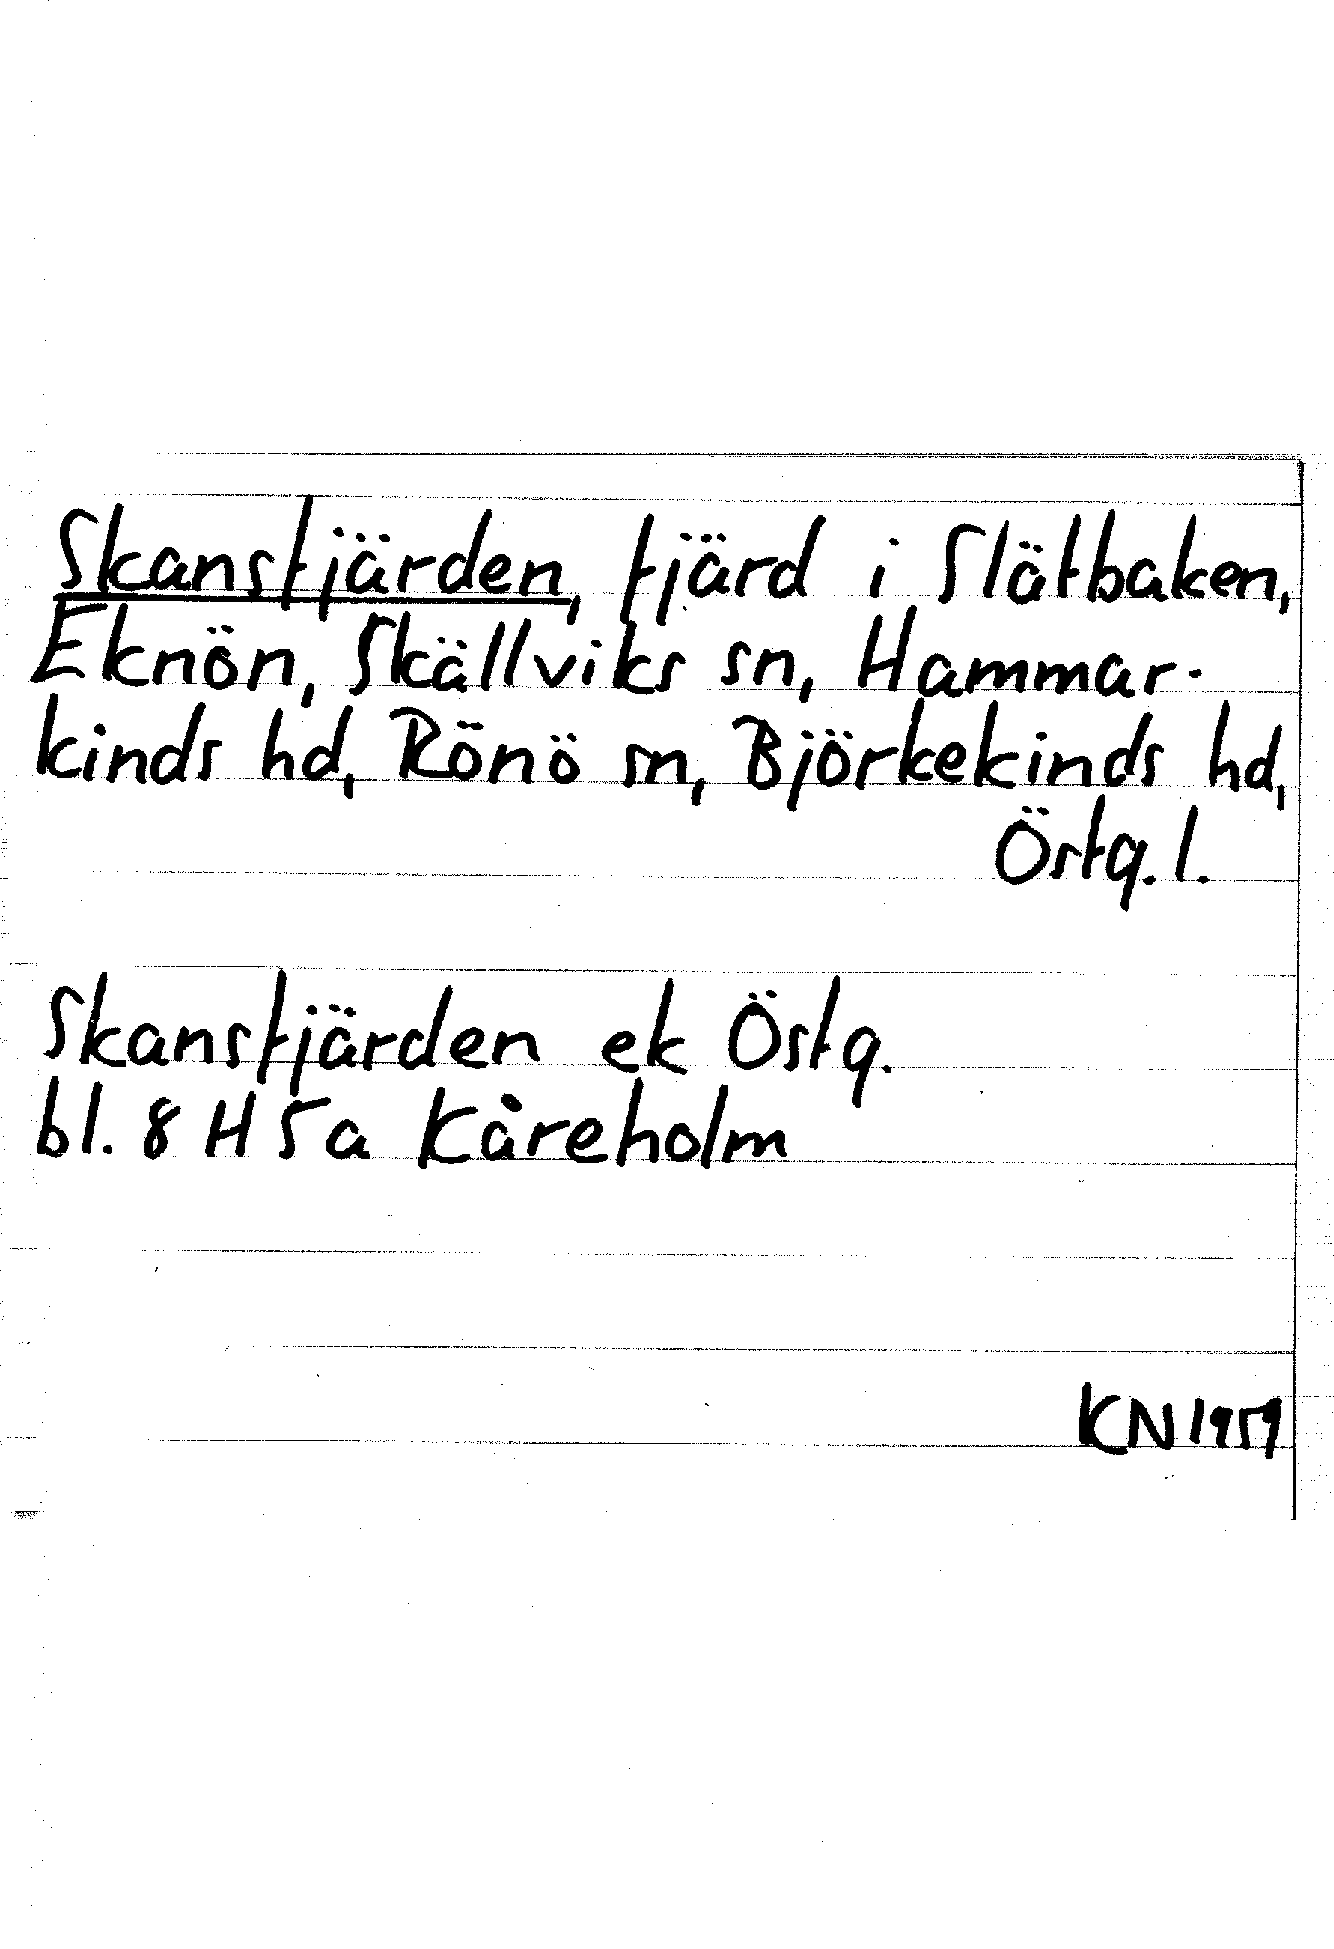 Skansfjärden, fjärd i Slätbaken,
Eknön, Skällviks sn, Hammar-
kinds hd, Rönö sn, Björkekinds hd,
Östg. l.
Skansfjärden ek Östg.
bl. 8 H 5a Kåreholm
KN 1959